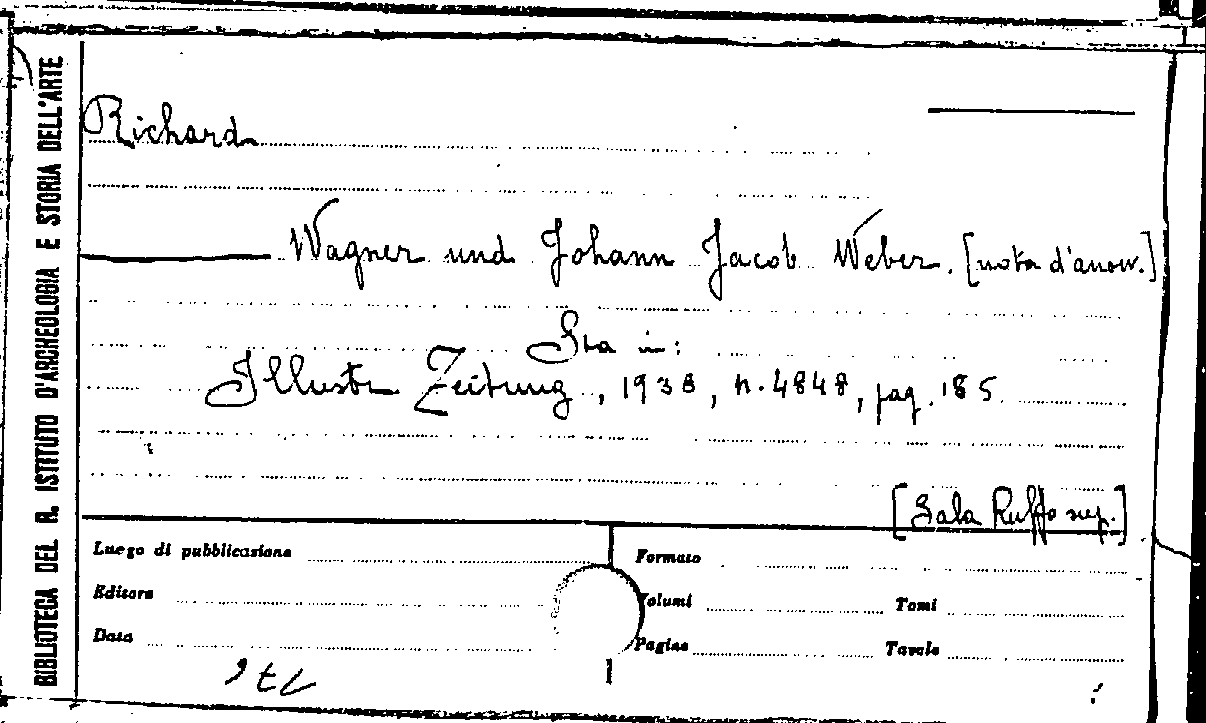 BIBLIOTECA DEL R. ISTITUTO D'ARCHEOLOGIA E STORIA DELL'ARTE
Richard
Wagner und Johann Jacob Weber. [nota d'anon.]
Sta in:
Illustr Zeitung, 1938, n. 4848, pag. 185
[Sala Ruffo sup.]
Luogo di pubblicazione
Formato
Editore
Volumi
Tomi
Data
Pagine
Tavole